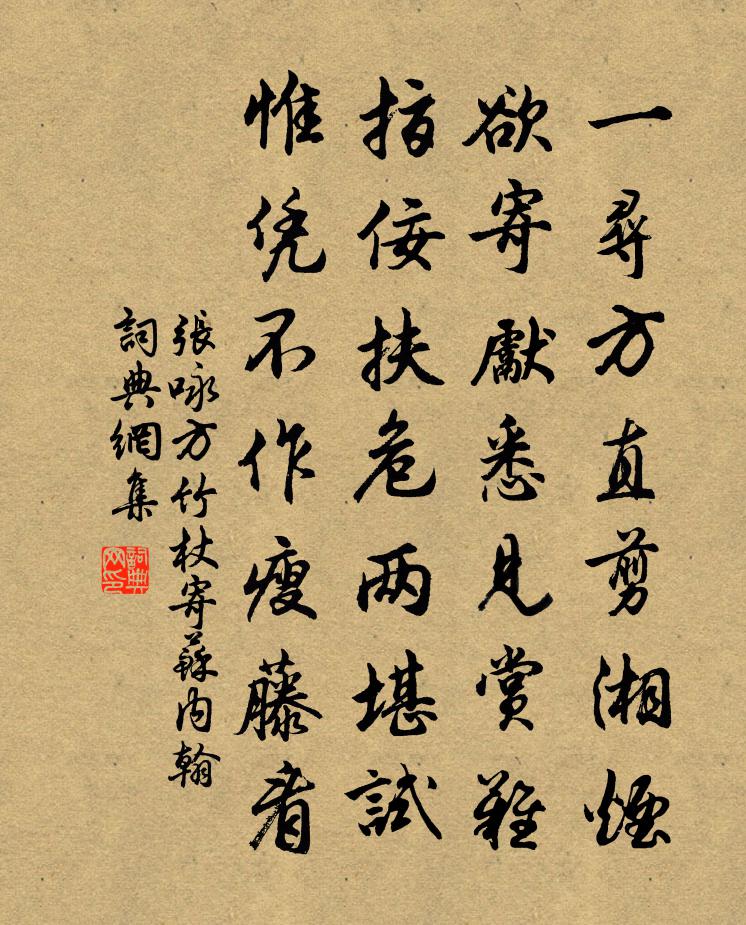 一尋方直剪湘煙
欲寄獻悉見賞難
指佞扶危两堪試
惟凭不作瘦藤看
張咏方竹杖寄蘇内翰
詞典網集
詞典网印